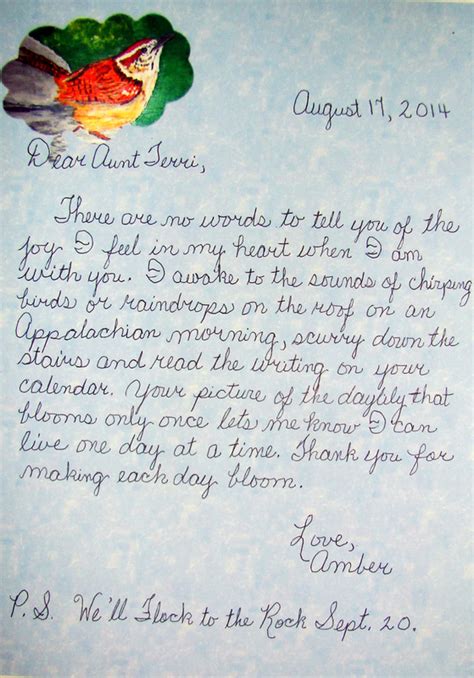 August 17, 2014
Dear Aunt Terri,
There are no words to tell you of the
joy I feel in my heart when I am
with you. I awake to the sounds of chirping
birds or raindrops on the roof on an
Appalachian morning, scurry down the
stairs and read the writing on your
calendar. Your picture of the daylily that
blooms only once lets me know I can
live one day at a time. Thank you for
making each day bloom.
Love,
Amber
P.S. We'll Flock to the Rock Sept. 20.